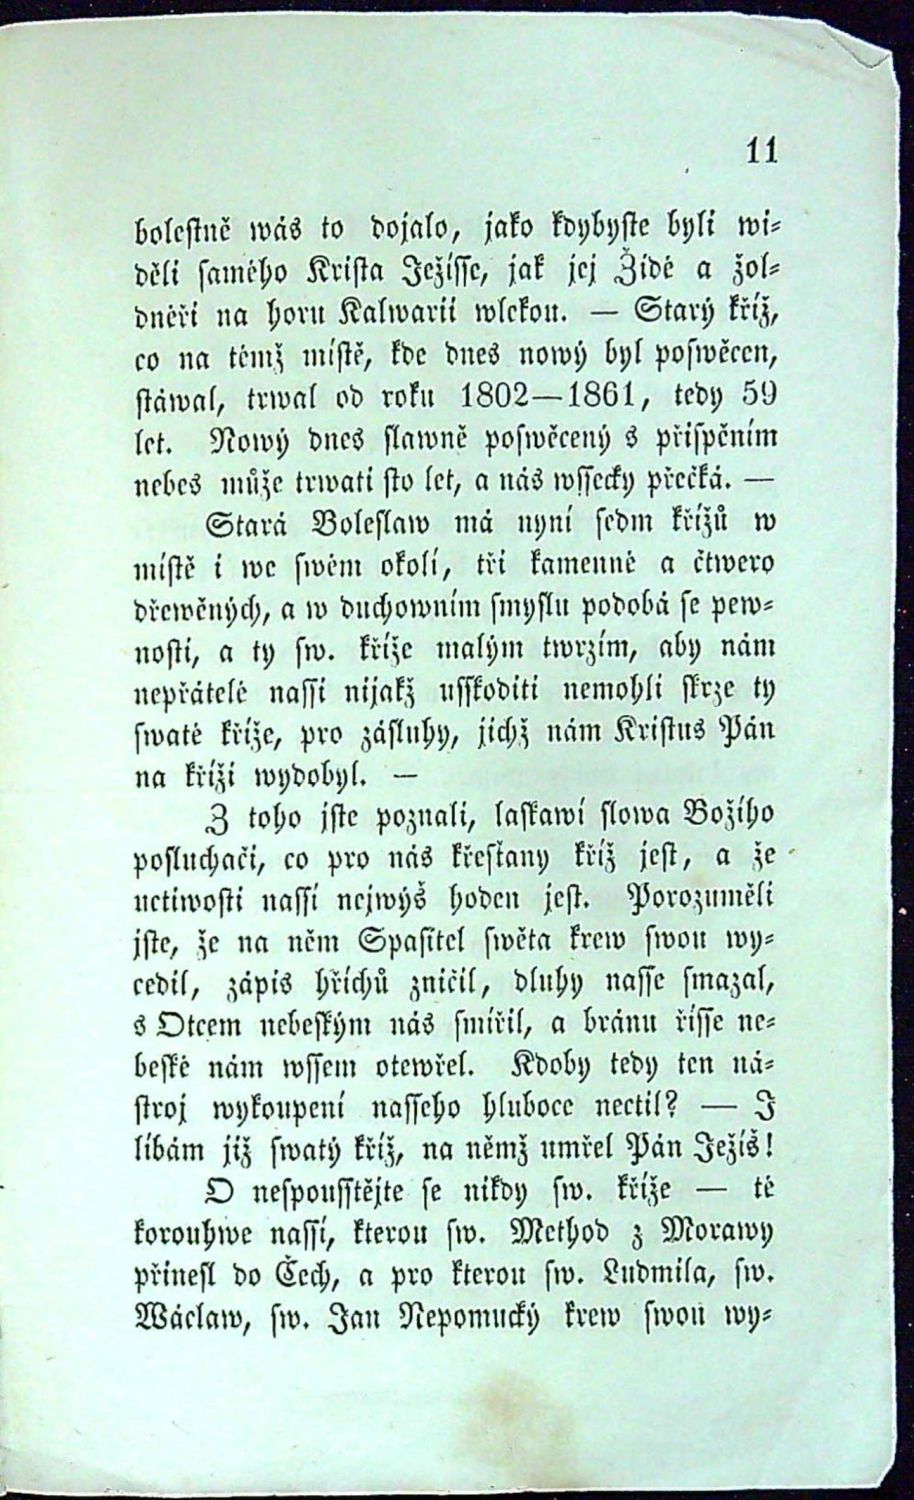 11
bolestně wás to dojalo, jako kdybyste byli wi-
děli samého Krista Ježísse, jak jej Židé a žol-
dnéři na horu Kalwarii wlekou. — Starý kříž,
co na témž místě, kde dnes nowý byl poswěcen,
stáwal, trwal od roku 1802—1861, tedy 59
let. Nowý dnes slawně poswěcený s přispěním
nebes může trwati sto let, a nás wssecky přečká. —
Stará Boleslaw má nyní sedm křížů w
místě i we swém okolí, tři kamenné a čtwero
dřewěných, a w duchowním smyslu podobá se pew-
nosti, a ty sw. kříže malým twrzím, aby nám
nepřátelé nassi nijakž usskoditi nemohli skrze ty
swaté kříže, pro zásluhy, jichž nám Kristus Pán
na kříži wydobyl. —
Z toho jste poznali, laskawí slowa Božího
posluchači, co pro nás křesťany kříž jest, a že
uctiwosti nassí nejwýš hoden jest. Porozuměli
jste, že na něm Spasitel swěta krew swou wy-
cedil, zápis hříchů zničil, dluhy nasse smazal,
s Otcem nebeským nás smířil, a bránu řísse ne-
beské nám wssem otewřel. Kdoby tedy ten ná-
stroj wykoupení nasseho hluboce nectil? — I
líbám již swatý kříž, na němž umřel Pán Ježíš!
O nespousstějte se nikdy sw. kříže — té
korouhwe nassí, kterou sw. Method z Morawy
přinesl do Čech, a pro kterou sw. Ludmila, sw.
Wáclaw, sw. Jan Nepomucký krew swou wy-